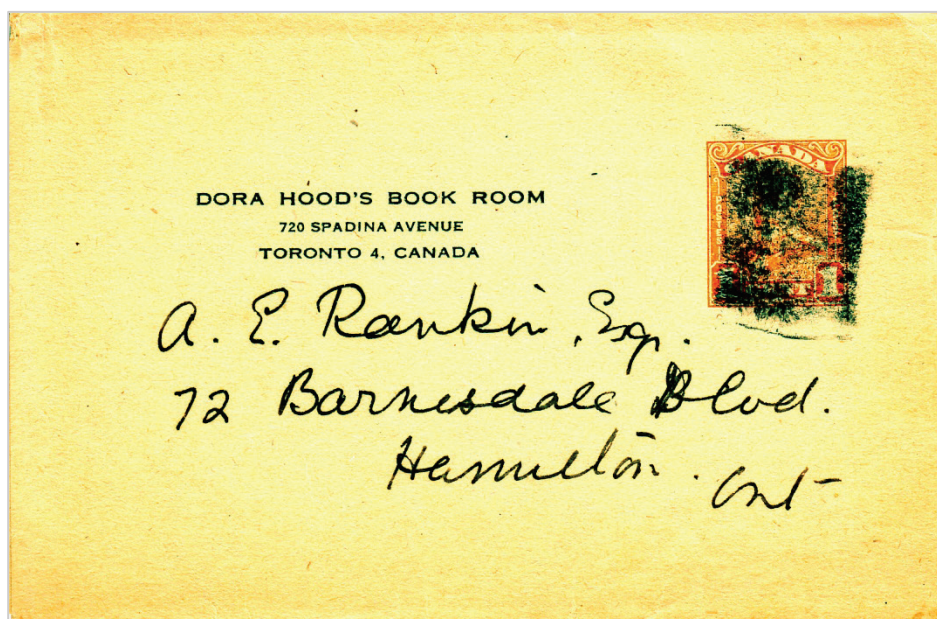 CANADA
1
DORA HOOD'S BOOK ROOM
720 SPADINA AVENUE
TORONTO 4, CANADA
A. E. Rankin, Esq.
72 Barnesdale Blvd.
Hamilton. Ont